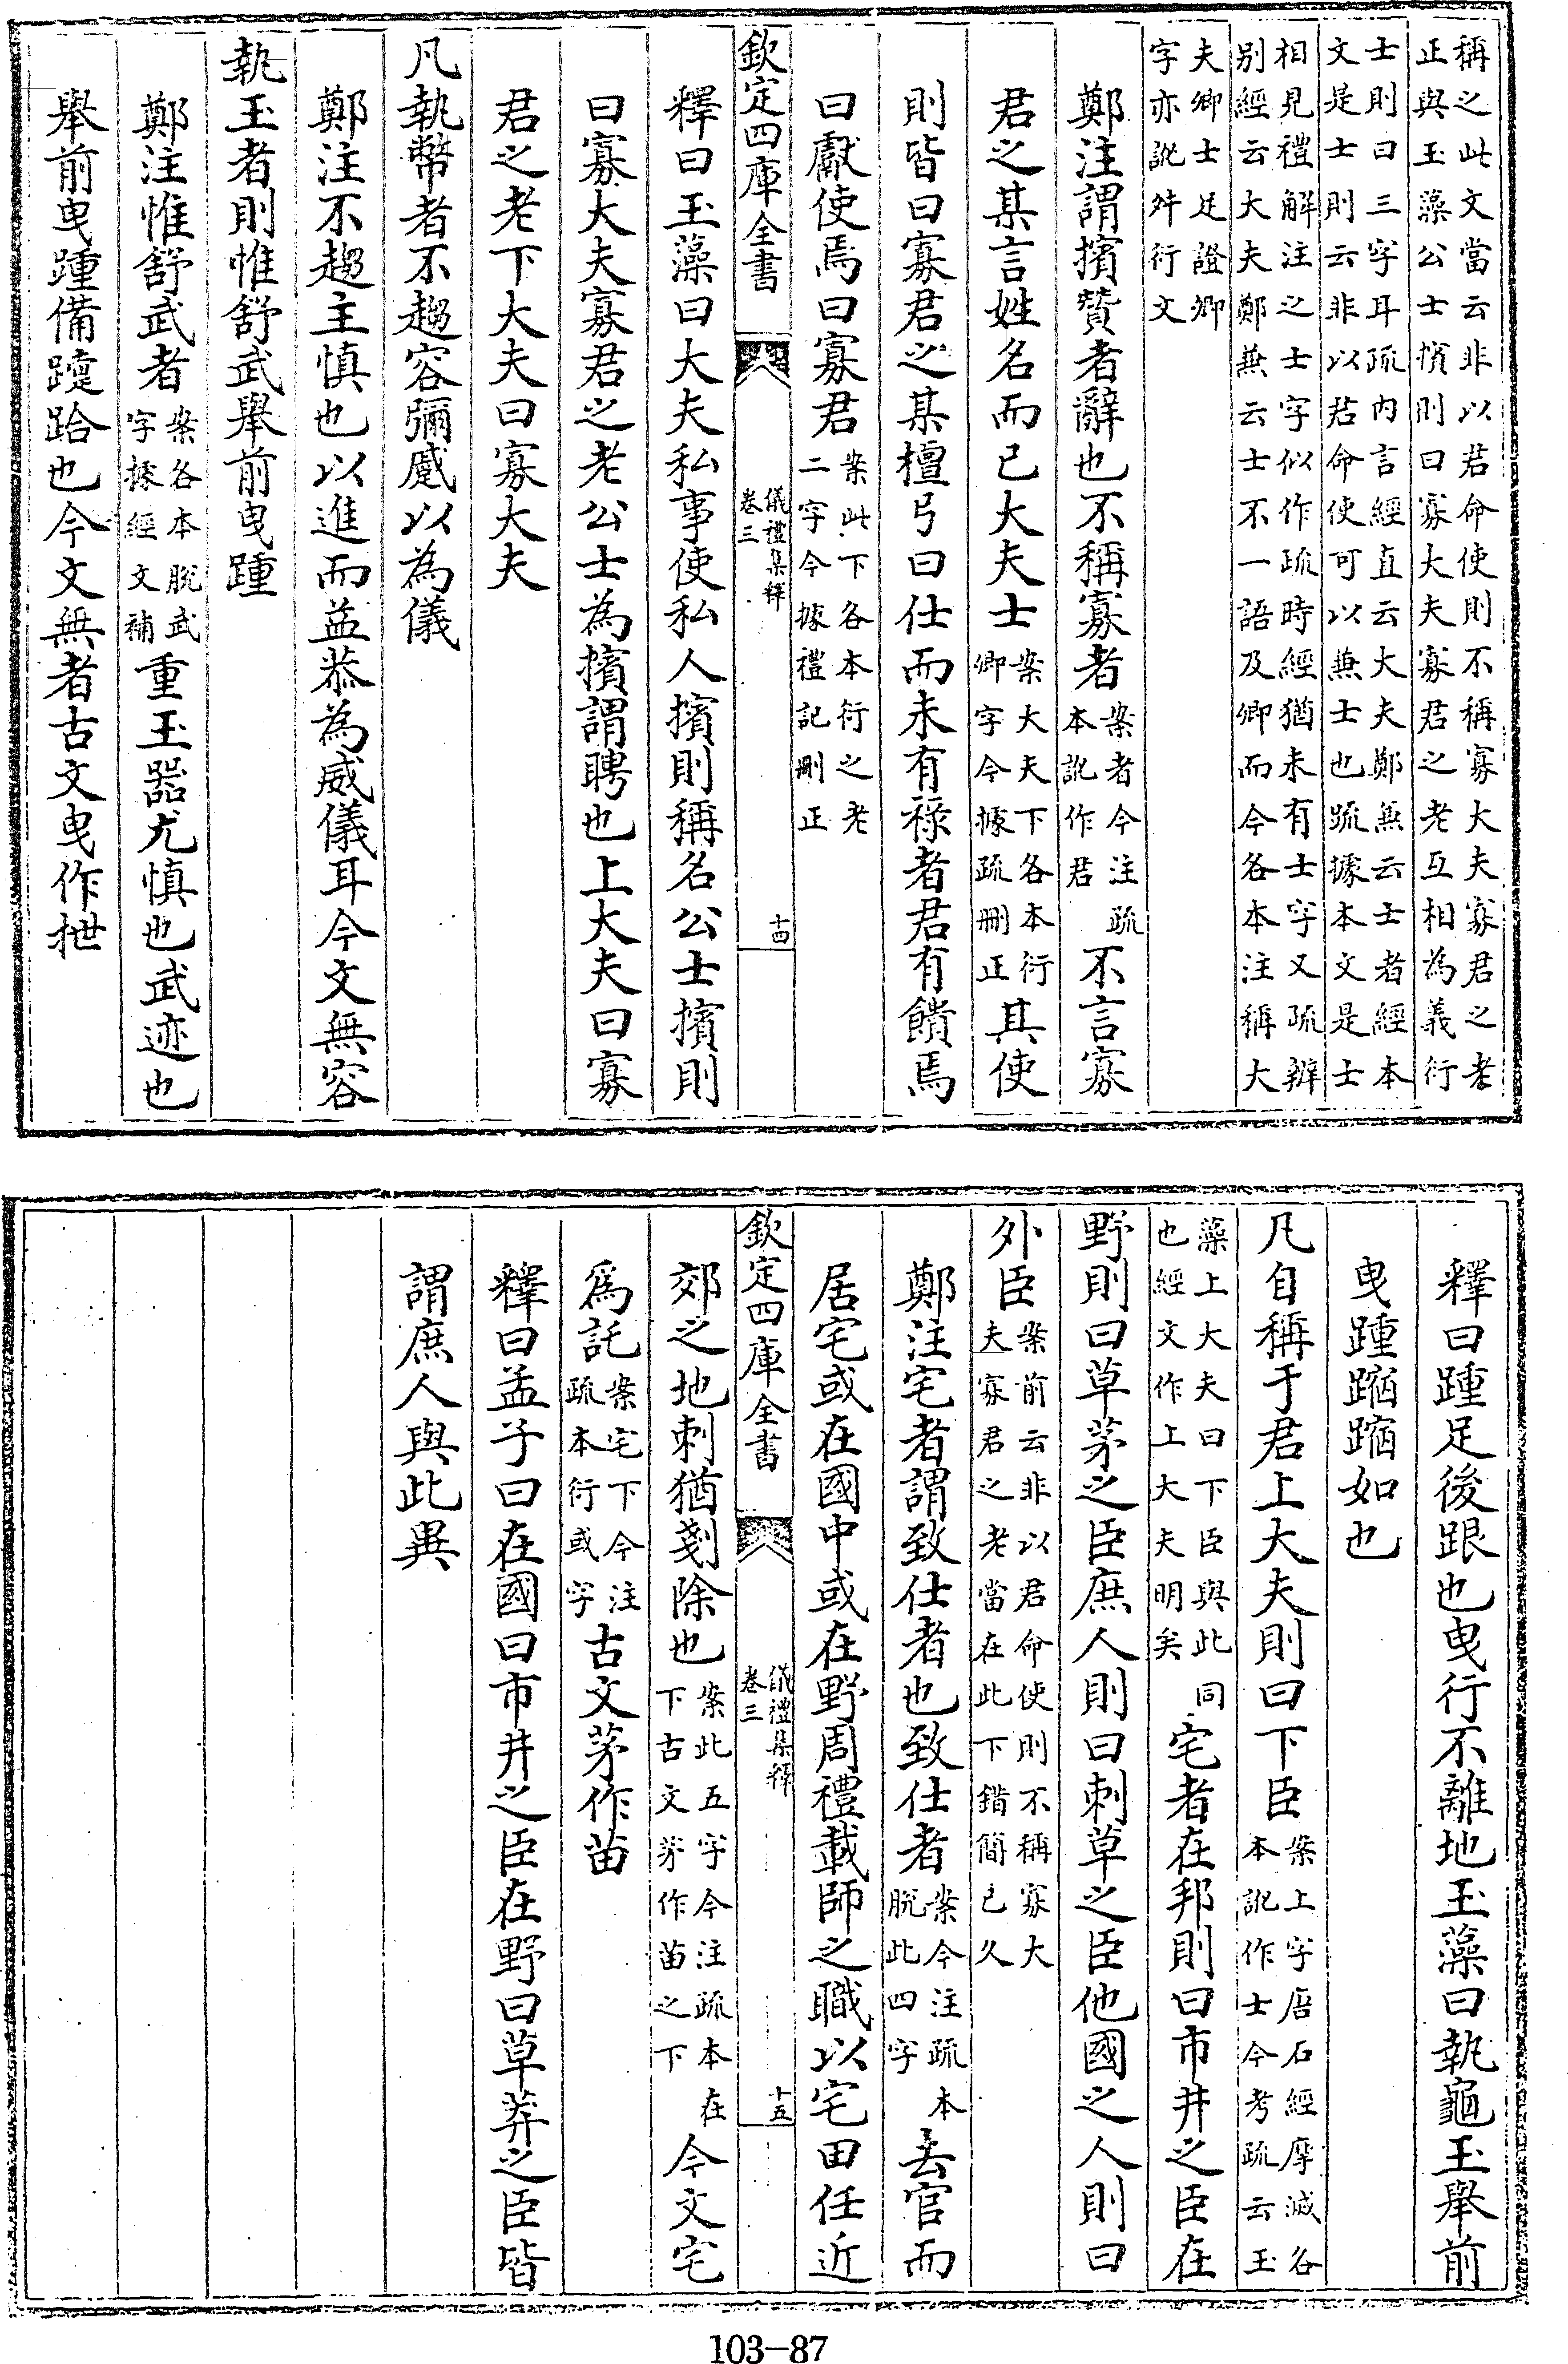 稱之此文當云非以君命使則不稱寡大夫寡君之老
正與玉藻公士擯則曰寡大夫寡君之老互相為義衍
士則曰三字耳疏內言經直云大夫鄭兼云士者經本
文是士則云非以君命使可以兼士也疏據本文是士
相見禮解注之士字似作疏時經猶未有士字又疏辨
别經云大夫鄭兼云士不一語及卿而今各本注稱大
夫卿士廷證卿
字亦訛舛衍文
鄭注謂擯贊者辭也不稱寡者案者今注疏本訛作君不言寡
君之某言姓名而已大夫士案大夫下各本衍卿字今據疏刪正其使
則皆曰寡君之某檀弓曰仕而未有祿者君有饋焉
曰獻使焉曰寡君案此下各本衍之老二字今據禮記刪正
欽定四庫全書 儀禮集釋卷三 十四
釋曰玉藻曰大夫私事使私人擯則稱名公士擯則
曰寡大夫寡君之老公士為擯謂聘也上大夫曰寡
君之老下大夫曰寡大夫
凡執幣者不趨容彌蹙以為儀
鄭注不趨主慎也以進而益恭為威儀耳今文無容
執玉者則惟舒武舉前曳踵
鄭注惟舒武者案各本脫武字據經文補重玉器尤慎也武迹也
舉前曳踵備躓跲也今文無者古文曳作抴
釋曰踵足後跟也曳行不離地玉藻曰執龜玉舉前
曳踵蹜蹜如也
凡自稱于君上大夫則曰下臣案上字唐石經摩滅各本訛作士今考疏云玉
藻上大夫曰下臣與此同也經文作上大夫明矣宅者在邦則曰市井之臣在
野則曰草茅之臣庶人則曰刺草之臣他國之人則曰
外臣案前云非以君命使則不稱寡大夫寡君之老當在此下錯簡已久
鄭注宅者謂致仕者也致仕者案今注疏本脫此四字去官而
居宅或在國中或在野周禮載師之職以宅田任近
欽定四庫全書 儀禮集釋卷三 十五
郊之地刺猶剗除也案此五字今注疏本在下古文茅作苗之下今文宅
爲託案宅下今注疏本衍或字古文茅作苗
釋曰孟子曰在國曰市井之臣在野曰草莽之臣皆
謂庶人與此異
103-87